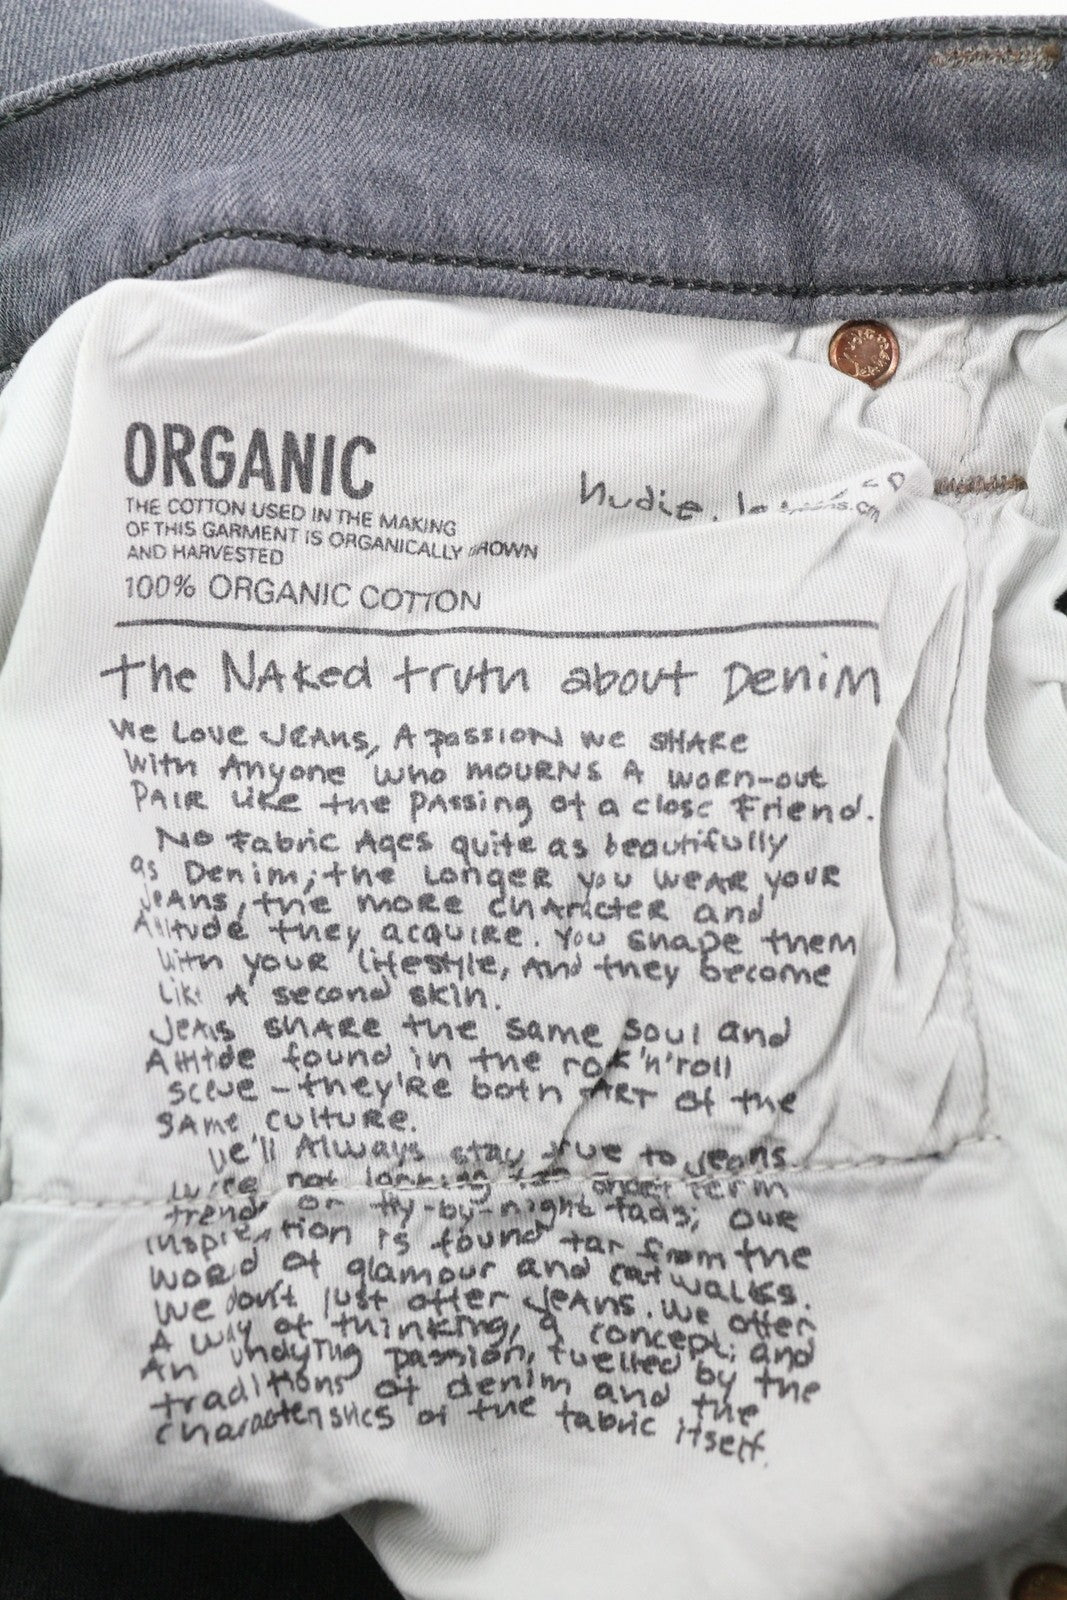 ORGANIC
THE COTTON USED IN THE MAKING
OF THIS GARMENT IS ORGANICALLY GROWN
AND HARVESTED
100% ORGANIC COTTON
Nudie
The NAKed truth about DeniM
We Love JEANS, A passion we SHARe
with Anyone who MOURNS A worn-out
PAIR Like the PAssing of a close Friend.
No Fabric Ages quite as beautifully
as Denim; the Longer you weAR your
JeAns, the more chARActer and
Attitude they acquire. You shape them
with your lifestyle, And they become
Like A second skin.
JeAns shARe the same soul and
Attitude found in the rock'n'roll
scene - they're both pART of the
SAMe culture.
We'll Always stay true to jeans.
We're not looking for short term
trends or fly-by-night fads; our
inspiration is found far from the
WORLD of glamour and catwalks.
We don't just offer JeAns. We offer
A way of thinking, a concept; and
An undying passion, fuelled by the
traditions of denim and the
characteristics of the fabric itself.